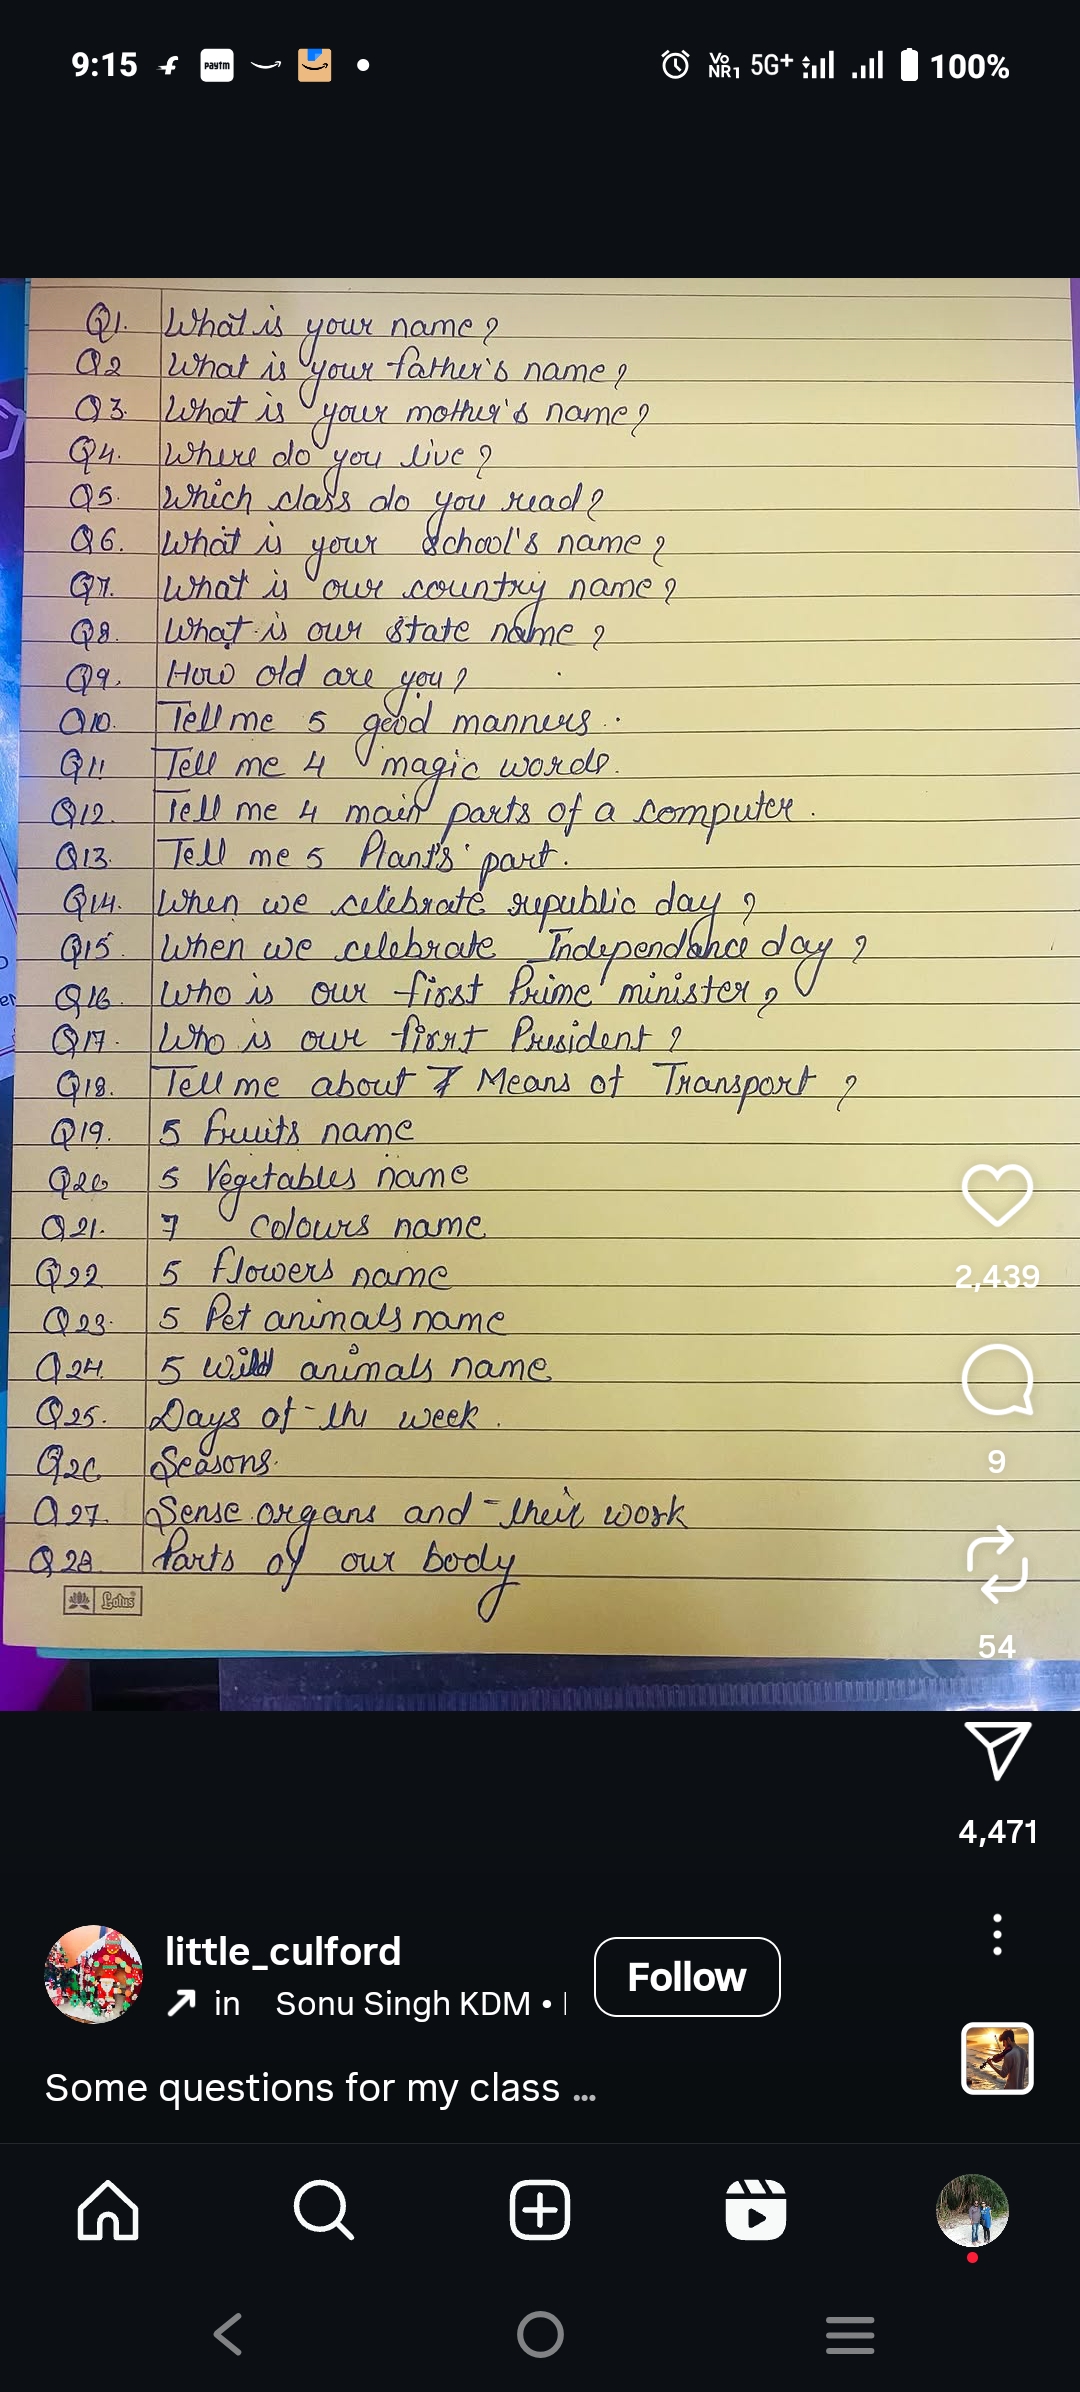 9:15 paytm Vo NR1 5G+ 100%
Q1. What is your name?
Q2 What is your father's name?
Q3. What is your mother's name?
Q4. Where do you live?
Q5. Which class do you read?
Q6. What is your school's name?
Q7. What is our country name?
Q8. What is our state name?
Q9. How old are you?
Q10. Tell me 5 good manners.
Q11 Tell me 4 magic words.
Q12. Tell me 4 main parts of a computer.
Q13. Tell me 5 Plants' part.
Q14. When we celebrate republic day?
Q15. When we celebrate Independance day?
Q16. Who is our first Prime minister?
Q17. Who is our first President?
Q18. Tell me about 7 Means of Transport?
Q19. 5 fruits name
Q20 5 Vegetables name
Q21. 7 colours name
Q22 5 flowers name
Q23. 5 Pet animals name
Q24. 5 wild animals name
Q25. Days of the week.
Q26 Seasons.
Q27. Sense organs and their work
Q28 Parts of our body
Lotus
2,439
9
54
4,471
little_culford
in Sonu Singh KDM •
Follow
Some questions for my class ...